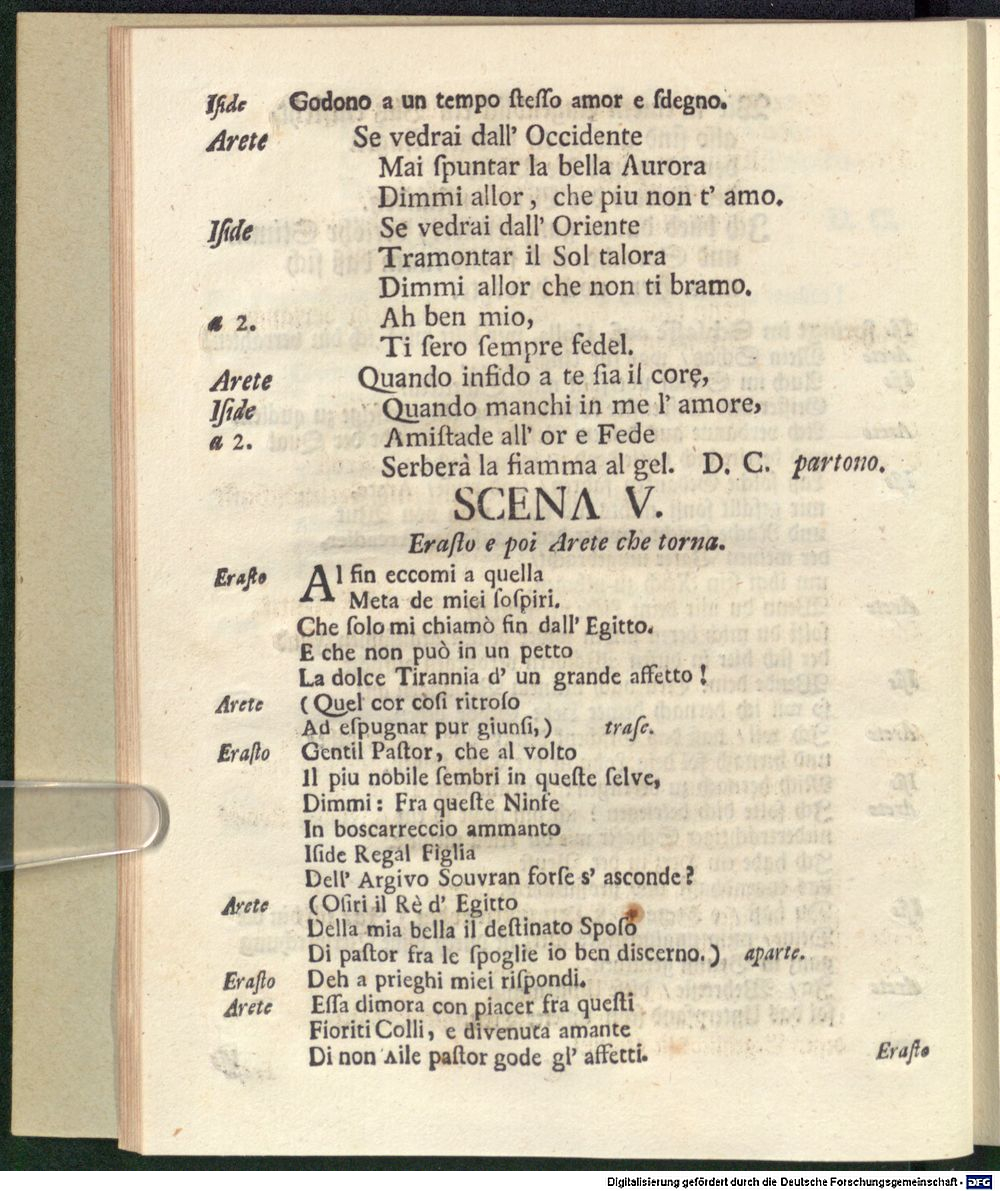 Iſide Godono a un tempo ſteſſo amor e ſdegno.
Arete Se vedrai dall' Occidente
Mai ſpuntar la bella Aurora
Dimmi allor, che piu non t' amo.
Iſide Se vedrai dall' Oriente
Tramontar il Sol talora
Dimmi allor che non ti bramo.
a 2. Ah ben mio,
Ti ſero ſempre fedel.
Arete Quando infido a te ſia il core,
Iſide Quando manchi in me l' amore,
a 2. Amiſtade all' or e Fede
Serberà la fiamma al gel. D. C. partono.
SCENA V.
Eraſto e poi Arete che torna.
Eraſto Al fin eccomi a quella
Meta de miei ſoſpiri.
Che ſolo mi chiamò fin dall' Egitto.
E che non può in un petto
La dolce Tirannia d' un grande affetto!
Arete (Quel cor coſi ritroſo
Ad eſpugnar pur giunſi,) traſe.
Eraſto Gentil Paſtor, che al volto
Il piu nobile ſembri in queſte ſelve,
Dimmi: Fra queſte Ninfe
In boscarreccio ammanto
Iſide Regal Figlia
Dell' Argivo Souvran forſe s' asconde?
Arete (Oſiri il Rè d' Egitto
Della mia bella il deſtinato Spoſo
Di paſtor fra le ſpoglie io ben discerno.) aparte.
Eraſto Deh a prieghi miei riſpondi.
Arete Eſſa dimora con piacer fra queſti
Fioriti Colli, e divenuta amante
Di non Aile paſtor gode gl' affetti.
Eraſto
Digitalisierung gefördert durch die Deutsche Forschungsgemeinschaft - DFG